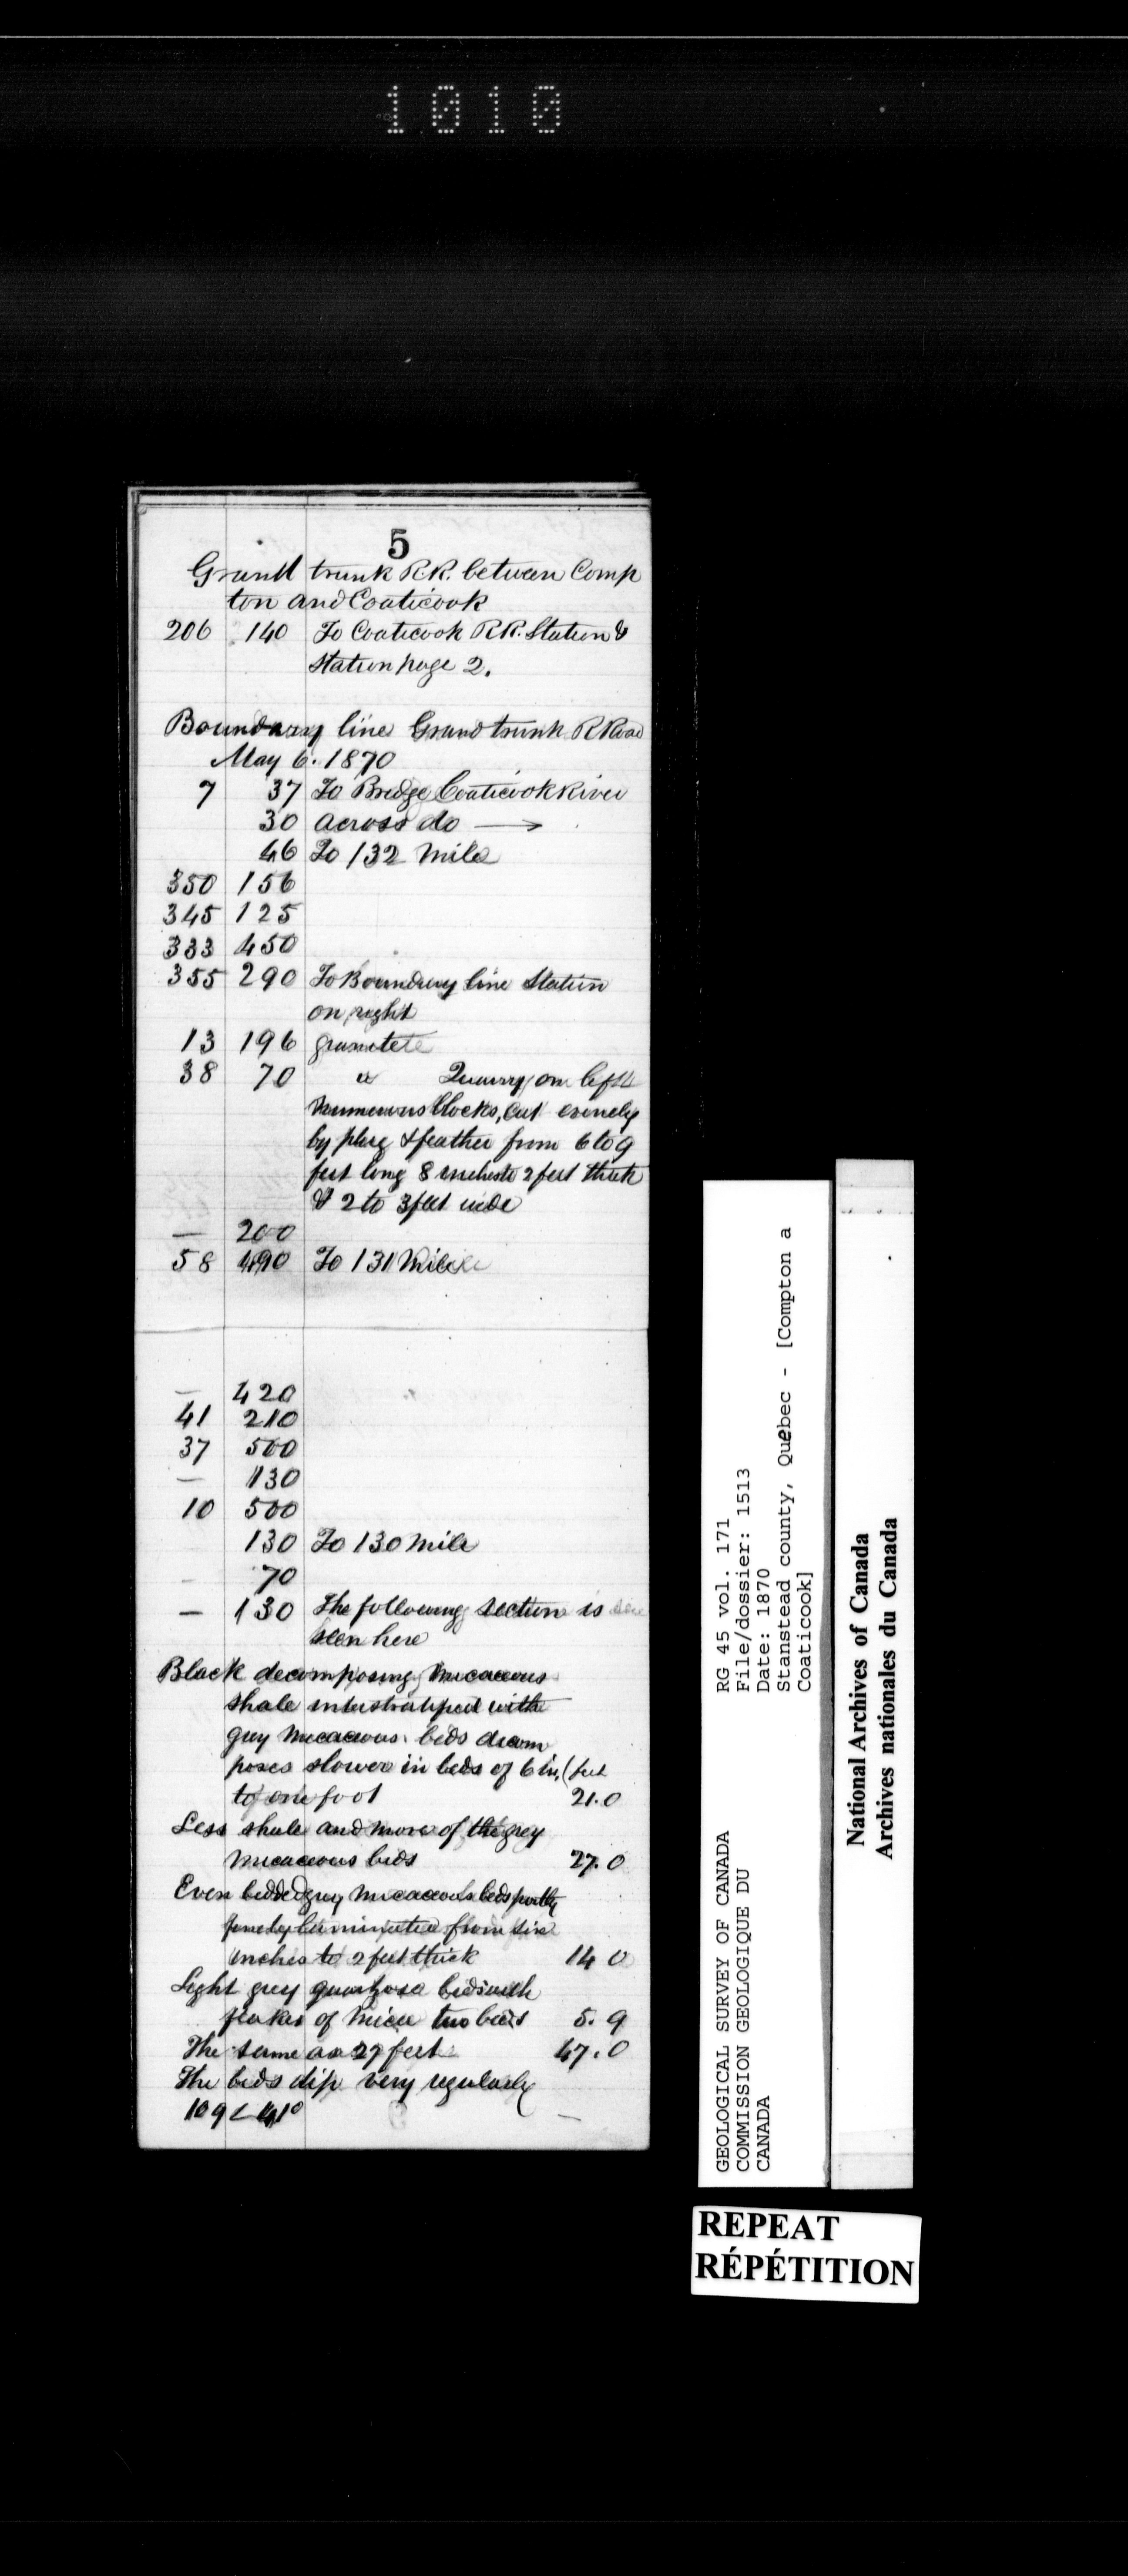 1010
5
Grand trunk R.R. between Comp
ton and Coaticook
206 140 To Coaticook R.R. Station &
Station page 2.
Boundary line Grand trunk R Road
May 6. 1870
7 37 To Bridge Coaticook River
30 across do →
46 To 132 Mile
350 156
345 125
333 450
355 290 To Boundary line Station
on right
13 196
38 70 " Quarry on left
numerous blocks, cut evenely
by plug & feather from 6 to 9
feet long 8 inches to 2 feet thick
& 2 to 3 feet wide
— 200
58 490 To 131 Mile
— 420
41 210
37 500
— 130
10 500
130 To 130 Mile
- 70
— 130 The following section is
seen here
Black decomposing micaceous
shale interstratified with
grey micaceous beds decom
poses slower in beds of 6 in. (feet
to one foot 21.0
Less shale and more of the grey
micaceous beds 27.0
Even bedded grey micaceous beds partly
finely laminated from six
inches to 2 feet thick 14 0
Light grey quartzose beds with
flakes of mica two beds 5. 9
The same as 27 feet 47.0
The beds dip very regularly
109 < 41°
GEOLOGICAL SURVEY OF CANADA
COMMISSION GEOLOGIQUE DU
CANADA
RG 45 vol. 171
File/dossier: 1513
Date: 1870
Stanstead county, Québec - [Compton a
Coaticook]
National Archives of Canada
Archives nationales du Canada
REPEAT
RÉPÉTITION